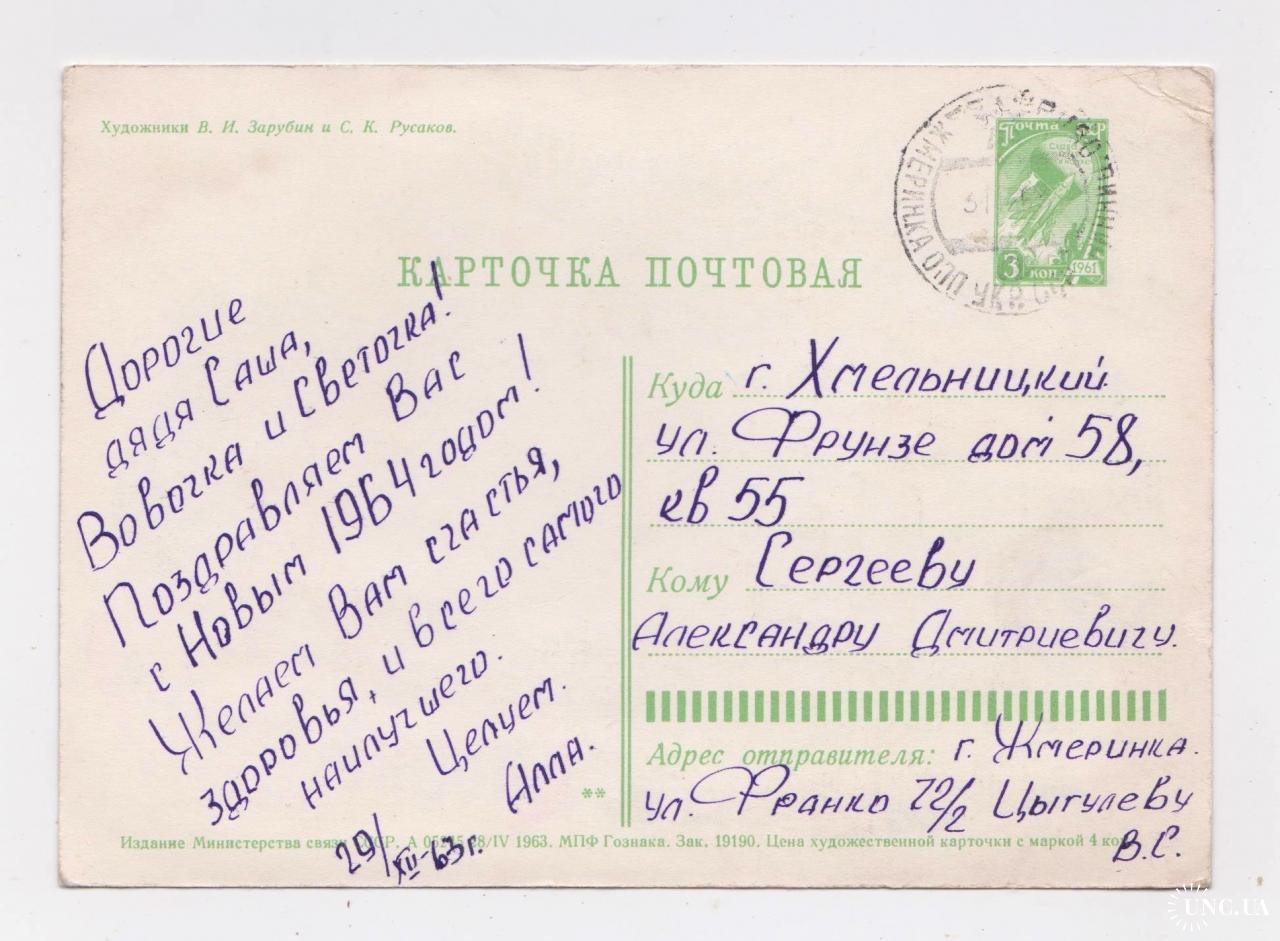 Художники В. И. Зарубин и С. К. Русаков.
Почта СССР
3 коп
1961
ЖМЕРИНКА
УКР
КАРТОЧКА ПОЧТОВАЯ
Дорогие
дядя Саша,
Вовочка и Светочка!
Поздравляем Вас
с Новым 1964 годом!
Желаем Вам счастья,
здоровья, и всего самого
наилучшего.
Целуем.
Алла.
29/XII-63г.
Куда г. Хмельницкий
ул. Фрунзе дом 58,
кв 55
Кому Сергееву
Александру Дмитриевичу.
Адрес отправителя: г. Жмеринка.
ул. Франко 72/2 Цыгулеву
В.С.
**
Издание Министерства связи СССР. А 05215 28/IV 1963. МПФ Гознака. Зак. 19190. Цена художественной карточки с маркой 4 коп.
UNC.UA